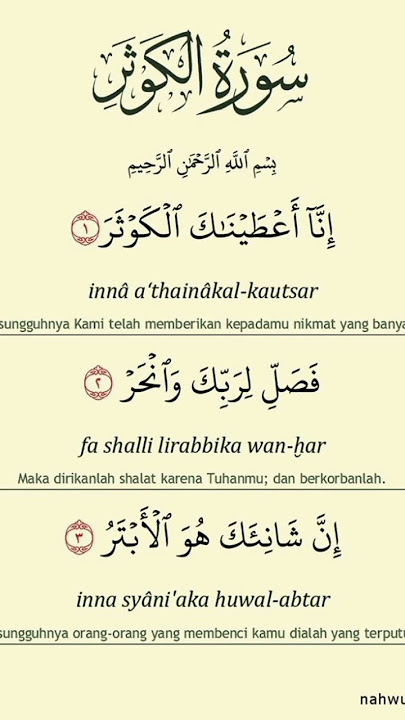 سُورَةُ الْكَوْثَرِ
بِسْمِ ٱللَّهِ ٱلرَّحْمَٰنِ ٱلرَّحِيمِ
إِنَّآ أَعْطَيْنَٰكَ ٱلْكَوْثَرَ ١
innâ a‘thainâkal-kautsar
sungguhnya Kami telah memberikan kepadamu nikmat yang banya
فَصَلِّ لِرَبِّكَ وَٱنْحَرْ ٢
fa shalli lirabbika wan-ḫar
Maka dirikanlah shalat karena Tuhanmu; dan berkorbanlah.
إِنَّ شَانِئَكَ هُوَ ٱلْأَبْتَرُ ٣
inna syâni'aka huwal-abtar
sungguhnya orang-orang yang membenci kamu dialah yang terputu
nahwu